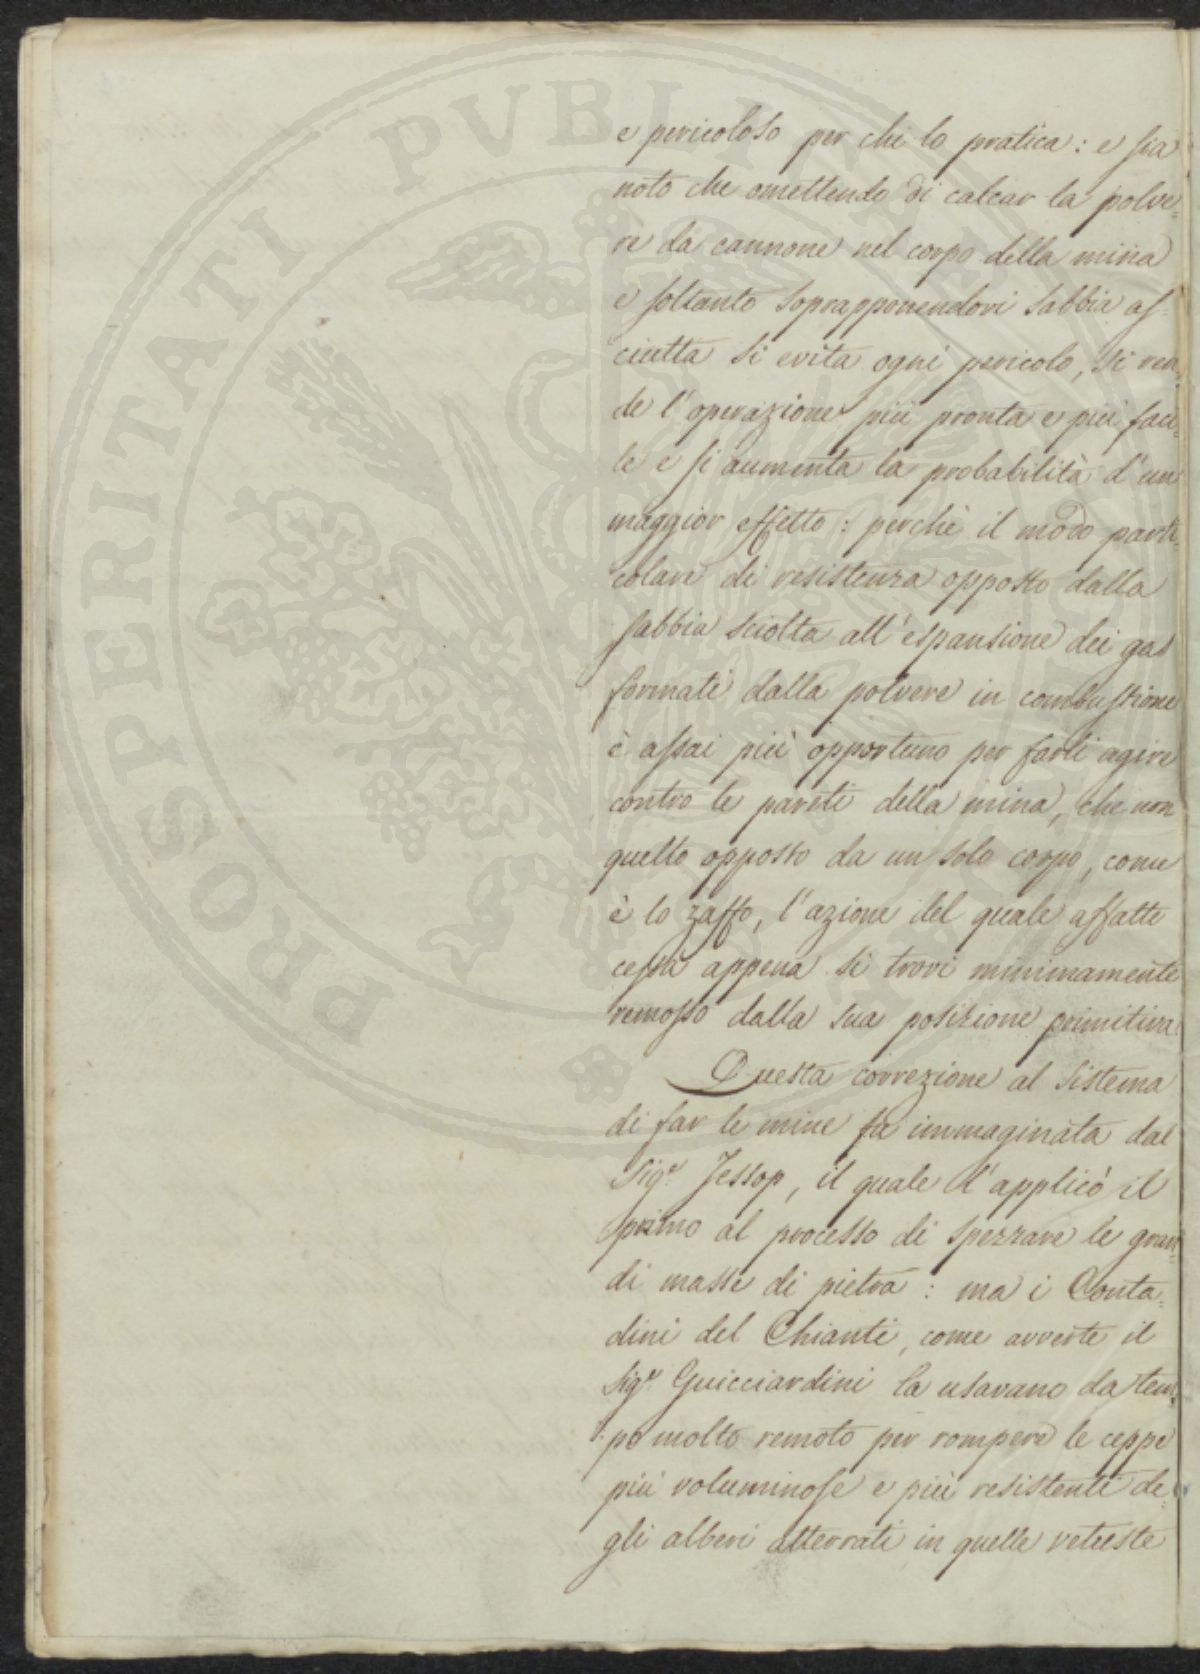 PROSPERITATI PUBLICAE
e pericoloso per chi lo pratica: e sia
noto che omettendo di calcar la polve=
re da cannone nel corpo della mina
e soltanto soprapponendovi sabbia as=
ciutta si evita ogni pericolo, si ren=
de l'operazione più pronta e più faci=
le e si aumenta la probabilità d'un
maggior effetto: perchè il modo parti=
colare di resistenza opposto dalla
sabbia sciolta all'espansione dei gas
formati dalla polvere in combustione
è assai più opportuno per farli agire
contro le pareti della mina, che non
quello opposto da un solo corpo, come
è lo zaffo, l'azione del quale affatto
cessa appena si trovi minimamente
remosso dalla sua posizione primitiva.
Questa correzione al sistema
di far le mine fu immaginata dal
Sigr. Jessop, il quale l'applicò il
primo al processo di spezzare le gran=
di masse di pietra: ma i Conta=
dini del Chianti, come avverte il
Sigr. Guicciardini la usavano da tem=
po molto remoto per rompere le ceppe
più voluminose e più resistenti de=
gli alberi atterrati in quelle vetuste